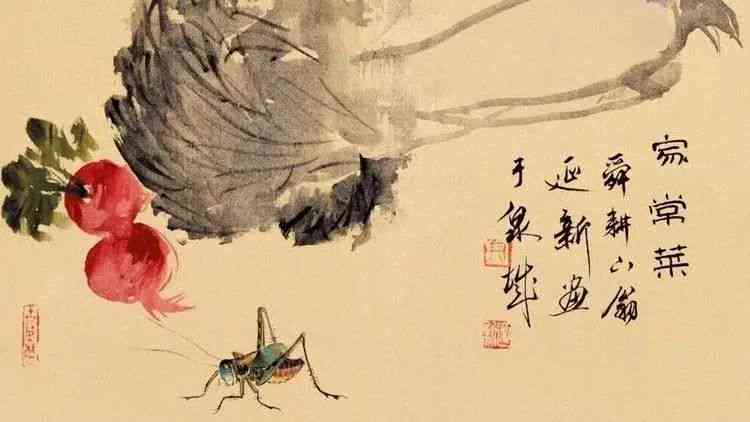 家常菜
舜耕山翁
延新画
于泉城